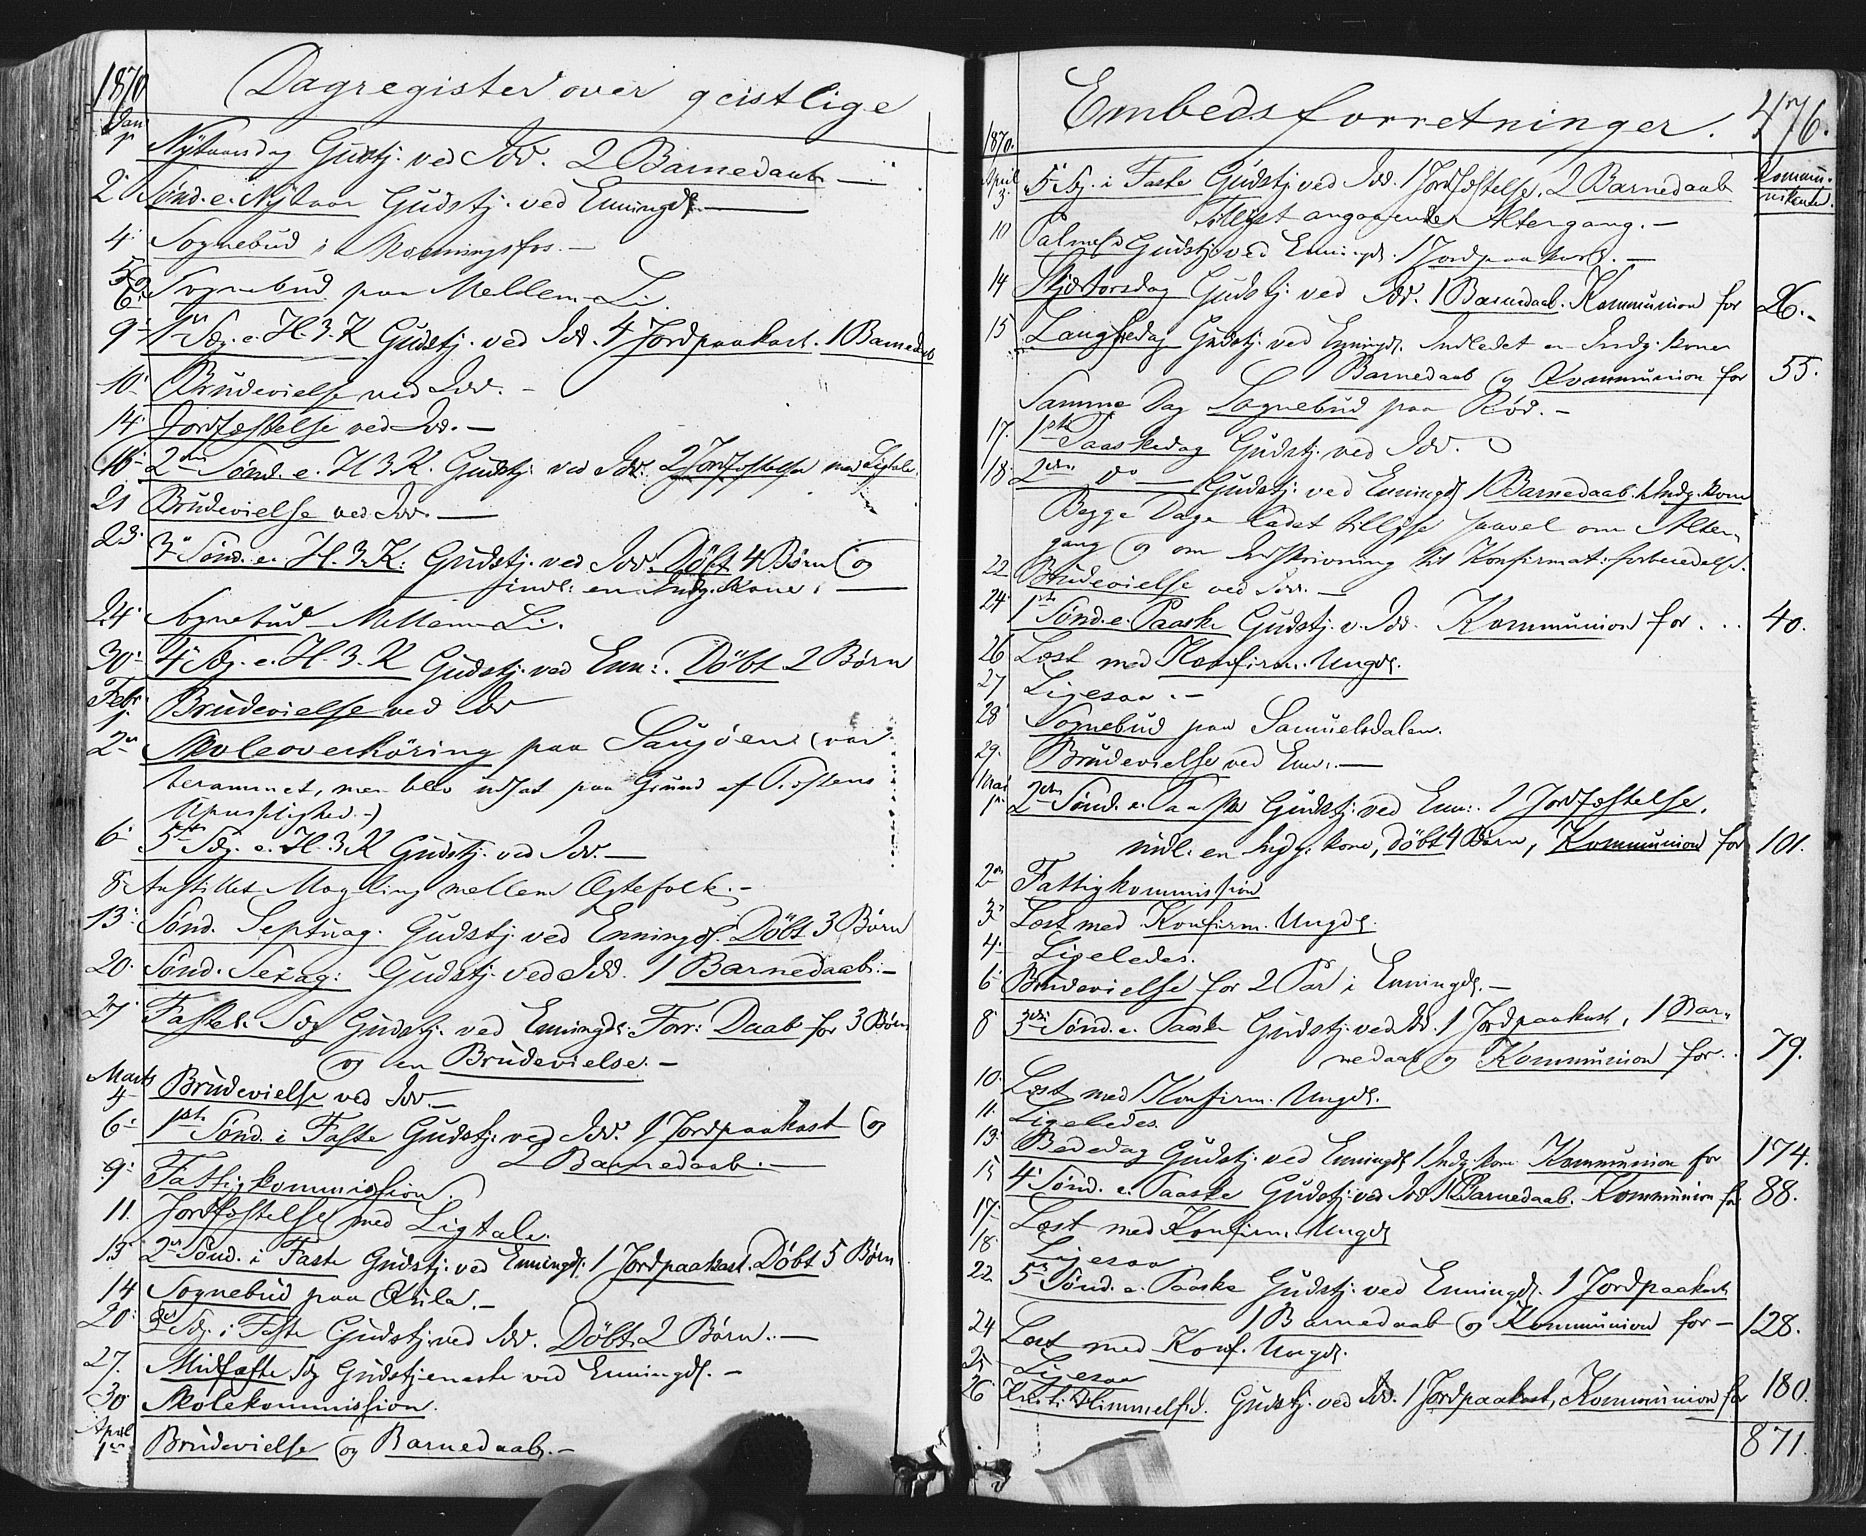 1870 Dagregister over geistlige
Jan
1. Nytaarsdag Gudstj. ved Idd. 2 Barnedaab —
2. Sønd. e. Nytaar Gudstj. ved Enningd. —
4. Sognebud i —
6. Sognebud paa Mellem-Li.
9. 1ste Søg. e. H. 3. K Gudstj. ved Idd. 4 Jordpaakast. 1 Barnedaab
10. Brudevielse ved Idd. —
14. Jordfæstelse ved Idd. —
16. 2den Sønd. e. H. 3. K. Gudstj. ved Idd. 2 Jordfæstelse med Ligtale.
21 Brudevielse ved Idd. —
23. 3. Sønd. e. H. 3. K. Gudstj. ved Idd. Döbt 4 Börn og
indl. en Indg. Kone. —
24. Sognebud Mellem-Li.
30. 4. Søg. e. H. 3. K Gudstj. ved Enn. Döbt 2 Börn
Febr.
1. Brudevielse ved Idd
2. Skoleoverhöring paa (var
berammet, men blev udsat paa Grund af
Upasslighed.)
6. 5te Søg. e. H. 3. K Gudstj. ved Idd. —
8. Anstillet Mægling mellem Ægtefolk. —
13. Sønd. Septuag. Gudstj. ved Enningd. Döbt 3 Börn
20. Sønd. Sexag. Gudstj. ved Idd. 1 Barnedaab. —
27. Fastel. Søg Gudstj. ved Enningd. Forr. Daab for 3 Börn
og en Brudevielse. —
Marts
4 Brudevielse ved Idd. —
6. 1ste Sønd. i Faste Gudstj. ved Idd. 1 Jordpaakast og
2 Barnedaab. —
9. Fattigkommission.
11. Jordfæstelse med Ligtale.
13 2en Sønd. i Faste Gudstj. ved Enningd. 1 Jordpaakast. Döbt 5 Börn
14 Sognebud paa —
20. 3die Søg. i Faste Gudstj. ved Idd. Döbt 2 Börn. —
27. Midfaste Søg Gudstjeneste ved Enningd. —
30 Skolekommission.
April
1. Brudevielse og Barnedaab. —
Embedsforretninger. 476.
1870. Kommunikanter.
April
3 5. Søg. i Faste Gudstj. ved Idd. 1 Jordfæstelse. 2 Barnedaab
Tillyst angaaende Altergang. —
10 Palmesd Gudstj. ved Enningd. 1 Jordpaakast. —
14 Skjærtorsdag Gudstj. ved Idd. 1 Barnedaab. Kommunion for 26. —
15 Langfredag Gudstj. ved Enningd. Indledet en Indg. kone
1 Barnedaab og Kommunion for 55.
Samme Dag Sognebud paa Röd. —
17. 1ste Paaskedag Gudstj. ved Idd.
18. 2den do — Gudstj. ved Enningd 1 Barnedaab. 1 Indg. kone
Begge Dage ladet tillyse saavel om Alter-
gang og om Indskrivning til Konfirmat: forberedelse.
22 Brudevielse ved Idd. —
24. 1ste Sønd. e. Paaske Gudstj. v. Idd. Kommunion for . . . 40.
26 Læst med Konfirm. Ungd.
27 Ligesaa. —
28 Sognebud paa Samuelsdalen.
29. Brudevielse ved Enn. —
Mai
1. 2den Sønd. e. Paaske Gudstj. ved Enn. 1 Jordfæstelse,
indl. en Indg. kone, döbt 4 Börn, Kommunion for 101.
2. Fattigkommission
3. Læst med Konfirm. Ungd.
4. Ligeledes.
6 Brudevielse for 2 Par i Enningd. —
8 3die Sønd. e. Paaske Gudstj. ved Idd. 1 Jordpaakast, 1 Bar-
nedaab og Kommunion for . . 79.
10. Læst med Konfirm. Ungd.
11. Ligeledes.
13. Bededag Gudstj. ved Enningd 1 Indg. kone Kommunion for 174.
15 4. Sønd. e. Paaske Gudstj. ved Idd 1 Barnedaab. Kommunion for 88.
17. Læst med Konfirm. Ungd
18. Ligesaa
22 5. Sønd. e. Paaske Gudstj. ved Enningd. 1 Jordpaakast
1 Barnedaab og Kommunion for — 128.
24 Læst med Konf. Ungd.
25 Ligesaa
26 Kristi Himmelfd. Gudstj. ved Idd. 1 Jordpaakast, Kommunion for 180.
871.